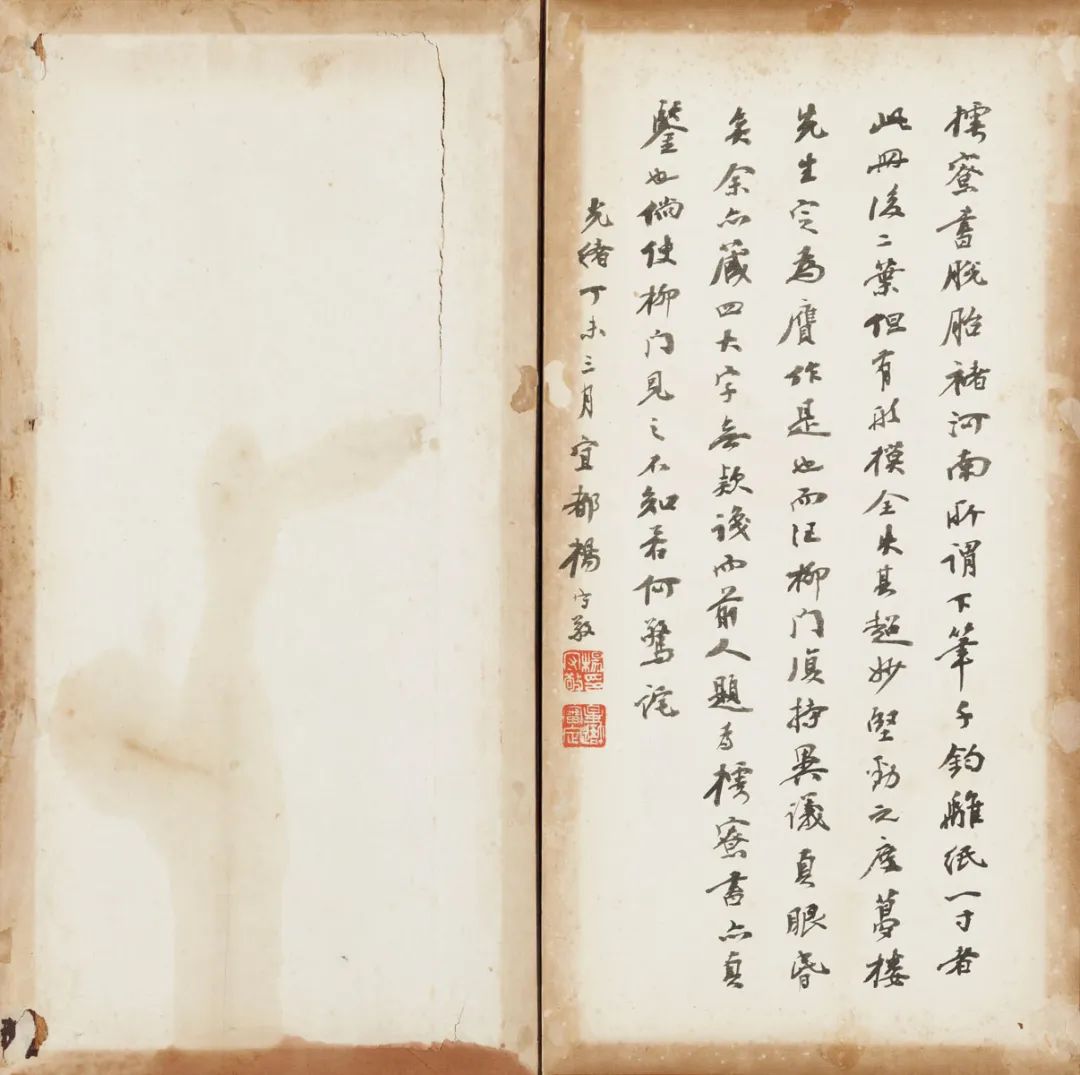 樗寮書脫胎褚河南所謂下筆千鈞離紙一寸者
此冊後二葉但有形模全失其超妙堅勁之度夢樓
先生定為贋作是也而汪柳门頋持異議真眼昏
矣余亦藏四大字無款識而前人題為樗寮書亦真
鑒也倘使柳门見之不知若何驚詫
光緒丁未三月宜都楊守敬
楊守敬印